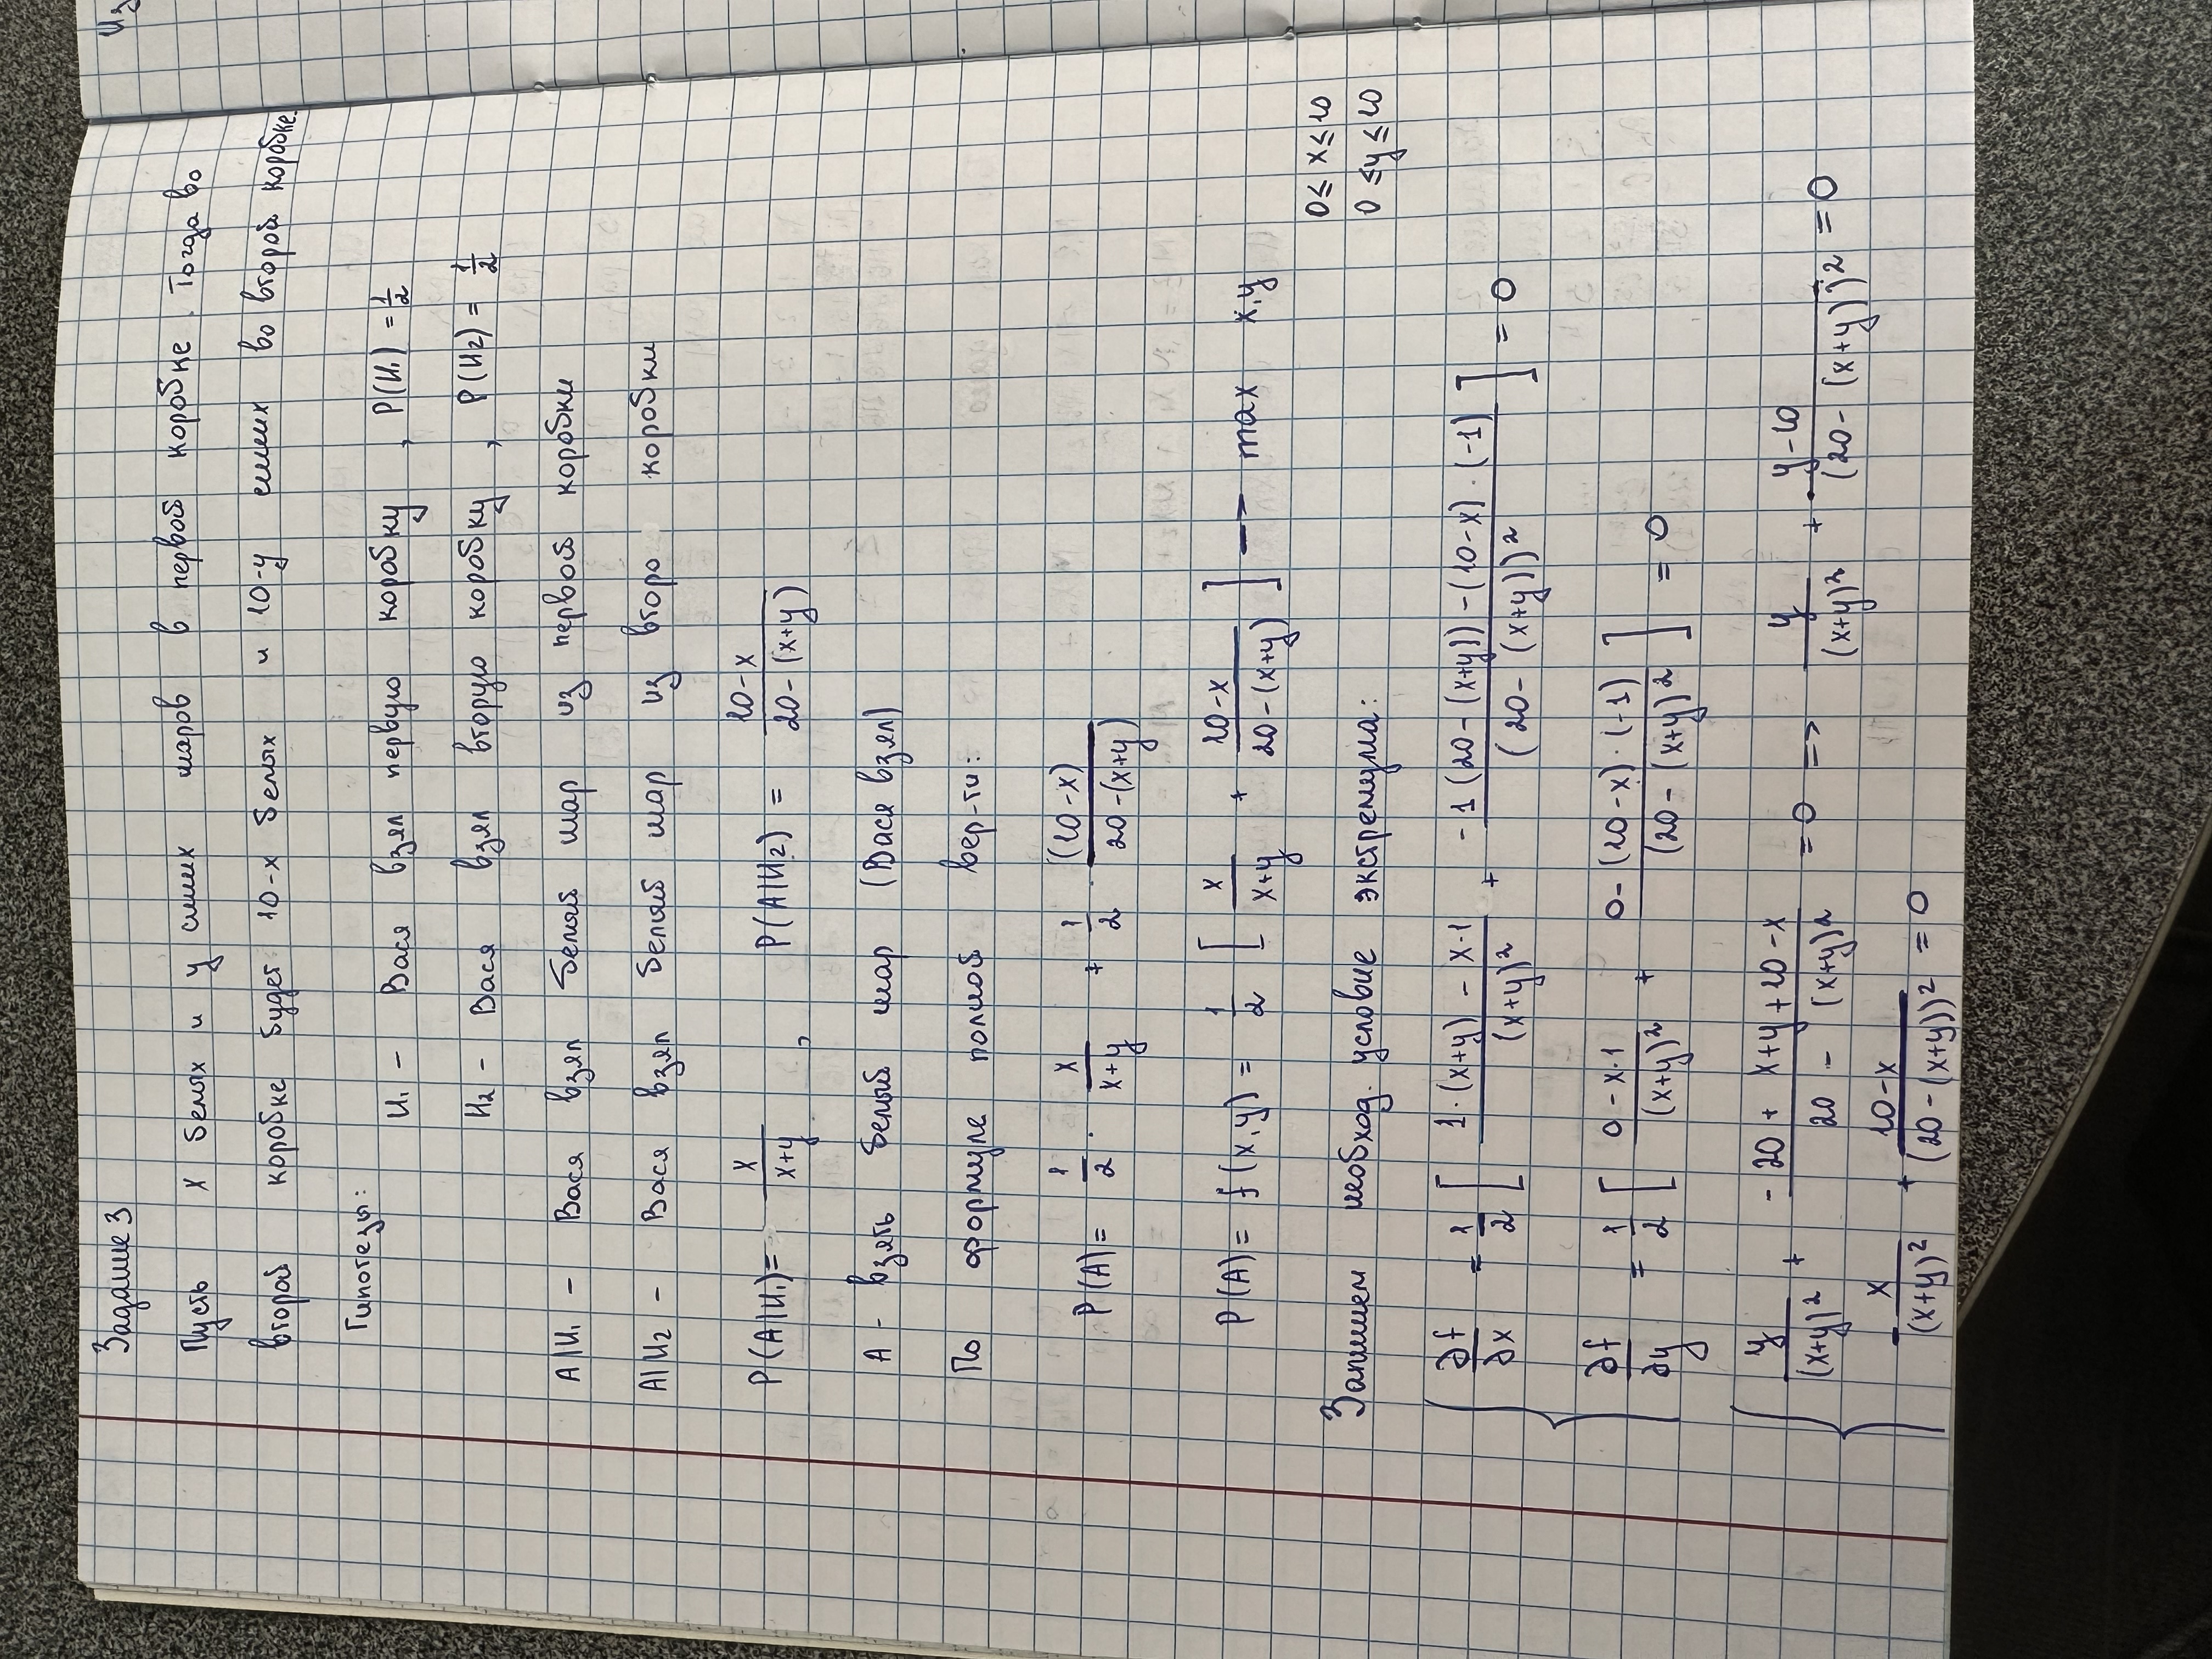 Задание 3
Из
Пусть x белых и y синих шаров в первой коробке. Тогда во
второй коробке будет 10-x белых и 10-y синих во второй коробке.
Гипотезы:
H₁ - Вася взял первую коробку, P(H₁) = 1/2
H₂ - Вася взял вторую коробку, P(H₂) = 1/2
A|H₁ - Вася взял белый шар из первой коробки
A|H₂ - Вася взял белый шар из второ коробки
P(A|H₁) = x/(x+y), P(A|H₂) = (10-x)/(20-(x+y))
A - взять белый шар (Вася взял)
По формуле полной вер-ти:
P(A) = 1/2 · x/(x+y) + 1/2 · (10-x)/(20-(x+y))
P(A) = f(x,y) = 1/2 [x/(x+y) + (10-x)/(20-(x+y))] → max x,y
0 ≤ x ≤ 10
0 ≤ y ≤ 10
Запишем необход. условие экстремума:
∂f/∂x = 1/2 [(1·(x+y) - x·1)/(x+y)² + (-1(20-(x+y)) - (10-x)·(-1))/(20-(x+y))²] = 0
∂f/∂y = 1/2 [(0 - x·1)/(x+y)² + (0-(10-x)·(-1))/(20-(x+y)²] = 0
y/(x+y)² + (-20 + x+y+10-x)/(20 - (x+y)2) = 0 => y/(x+y)² + (y-10)/(20-(x+y))² = 0
-x/(x+y)² + (10-x)/(20-(x+y))² = 0